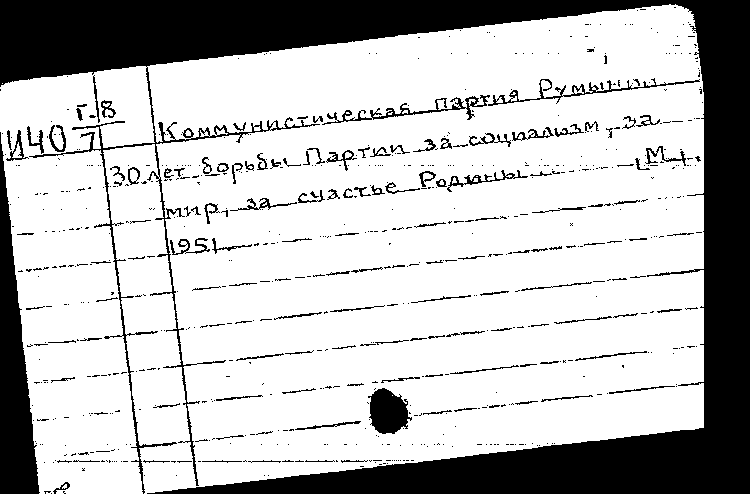 И40 Г.8/7 Коммунистическая партия Румынии
30 лет борьбы Партии за социализм, за
мир, за счастье Родины... [М.],
1951